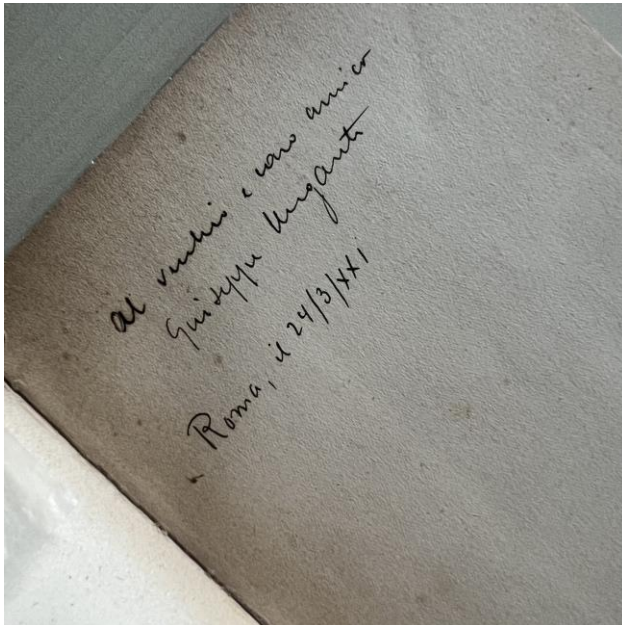 al vecchio e caro amico
Giuseppe Ungaretti
Roma, il 24/3/XXI